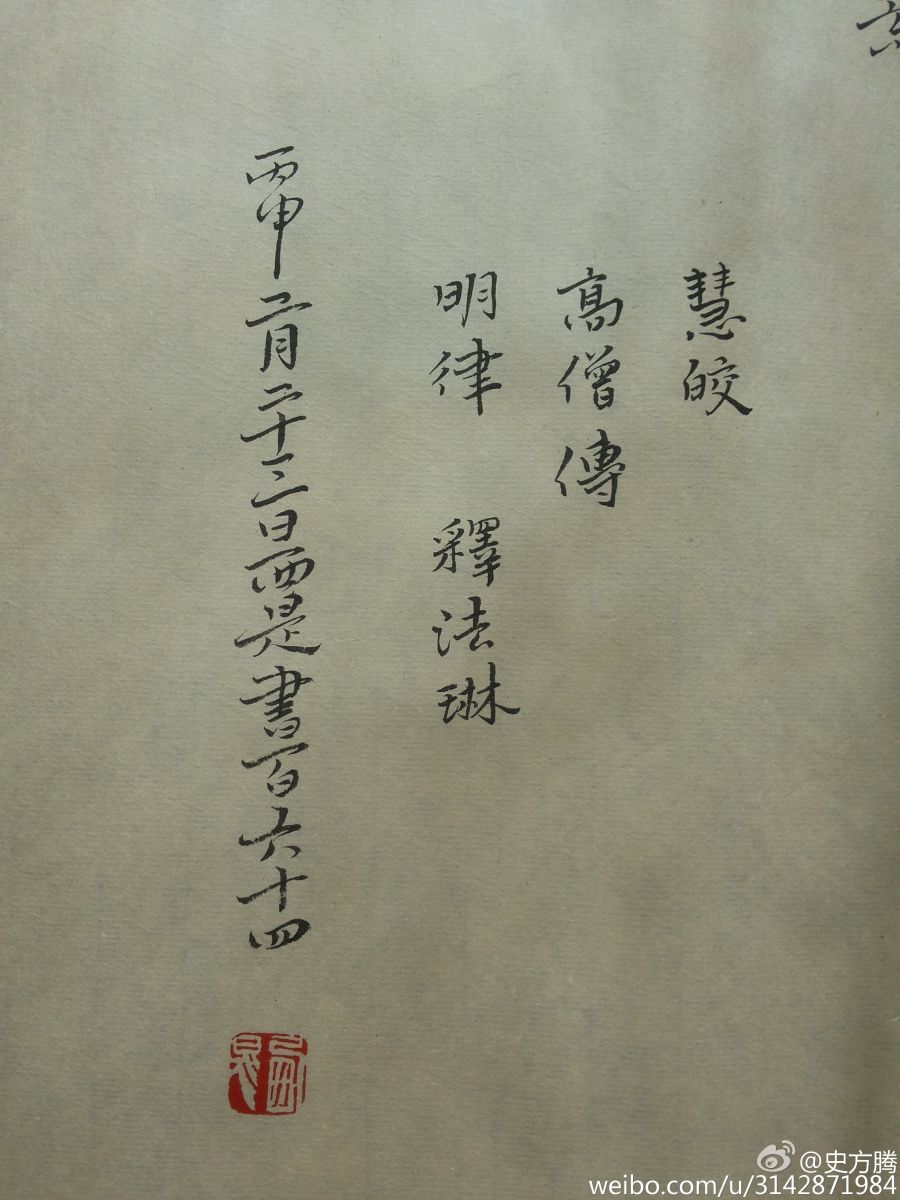 慧皎
高僧傳
明律 釋法琳
丙申二月二十三日西是書百六十四
@史方腾
weibo.com/u/3142871984